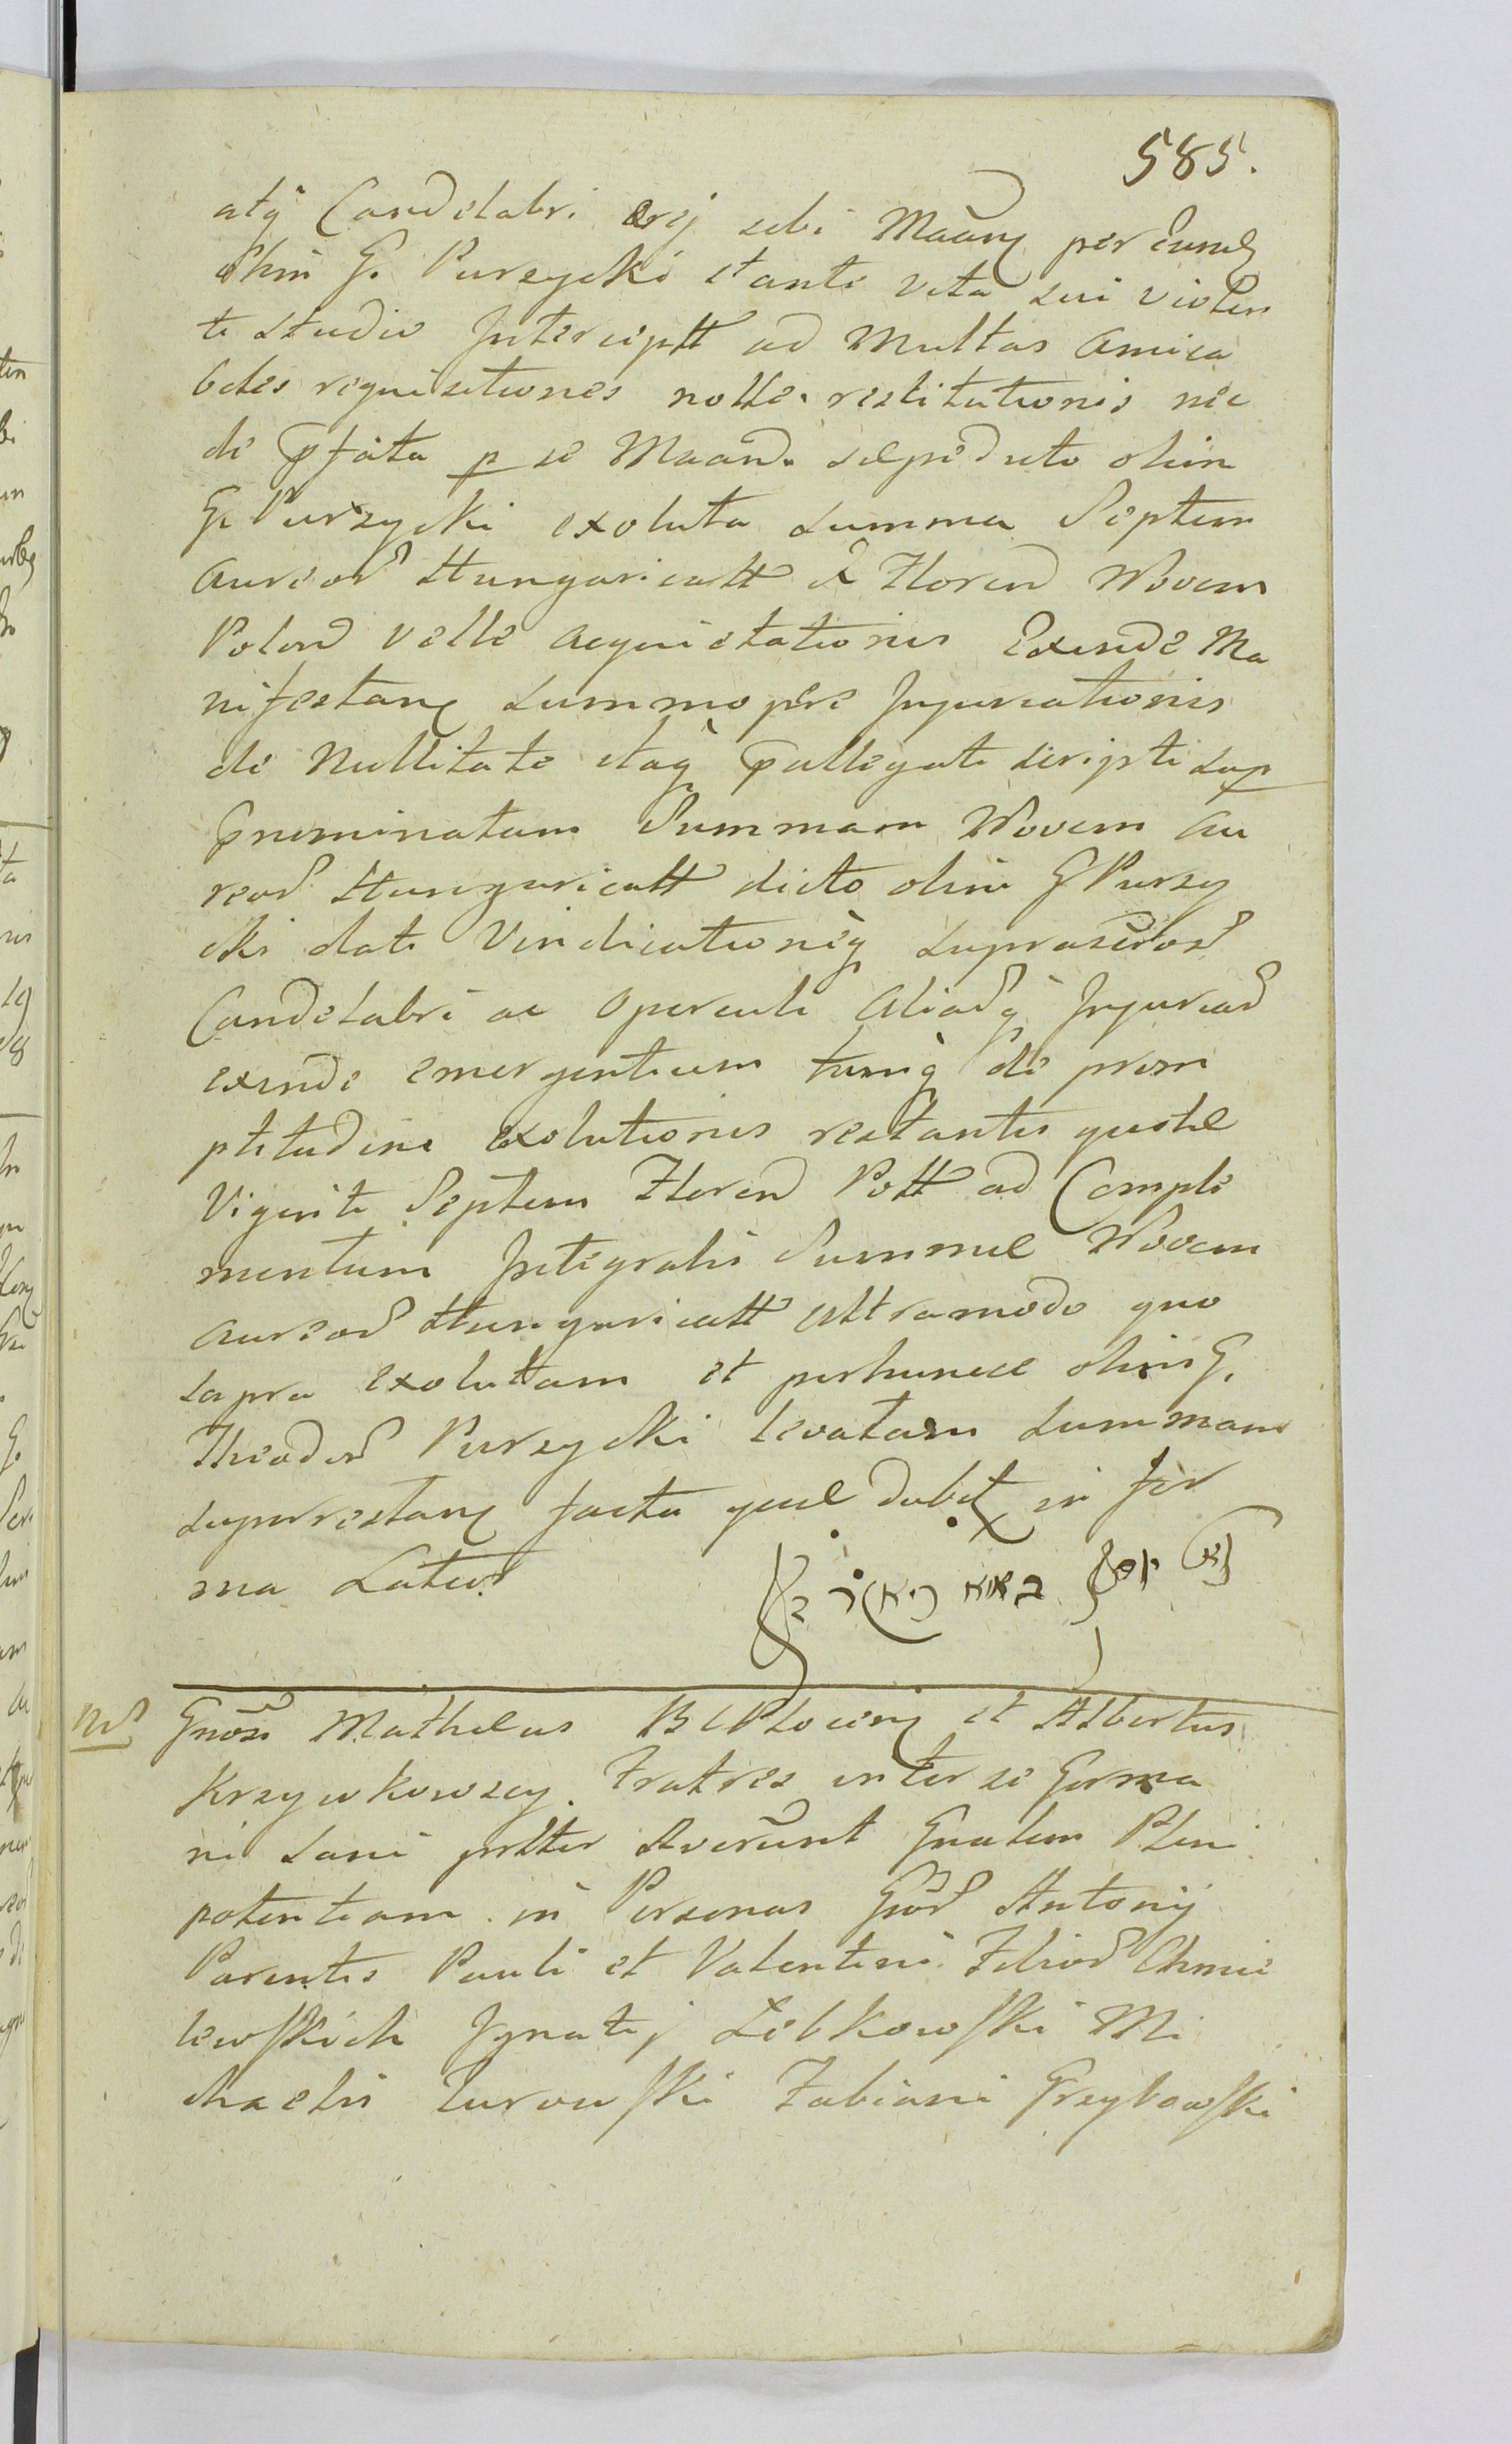 585.
atq̃ Candelabri ærej sibi Maãnq per eund
olim G. Purzycki stante vita sui violen
to studio Intercipt ad Multas amica
biles requisitiones nolle restitutionis nec
de pfata p se Maand. saepedicto olim
G. Purzycki exoluta summa Septem
aureoꝝ Hungaricall & Floren Novem
Polon velle acquietationis Exinde Ma
nifestanq summopere Injuriationis
de Nullitate itaq̃ pallegati scripti sup
pnominatam Summam Novem au
reoꝝ Hungaricall dicto olim G Purzy
cki dati Vindicationeq̃ suprascroꝝ
Candelabri ac operculi aliaꝝq̃ Injuriaꝝ
exinde emergentium tumq̃ de prom
ptitudine exolutionis restantis quotae
Viginti Septem Floren Poll ad Comple
mentum Integralis Summae Novem
aureoꝝ Hungaricall ultramodo quo
supra exolutam et perhuncce olim G.
Theodoꝝ Purzycki levatam summam
superrestanq facta quae dabit in for
ma Latioꝝ
יוסף
Nꝝ Gnõsi Mathaeus B C Plocenq et Albertus
Krzywkowscy Fratres inter se Germa
ni sani pnlter dederunt Gnalem Pleni
potentiam in Personas Gnõꝝ Antonij
Parentis Pauli et Valentini Filioꝝ Chmie
lewskich Ignatij Lelkowski Mi
chaelis Zurowski Fabiani Grzybowski